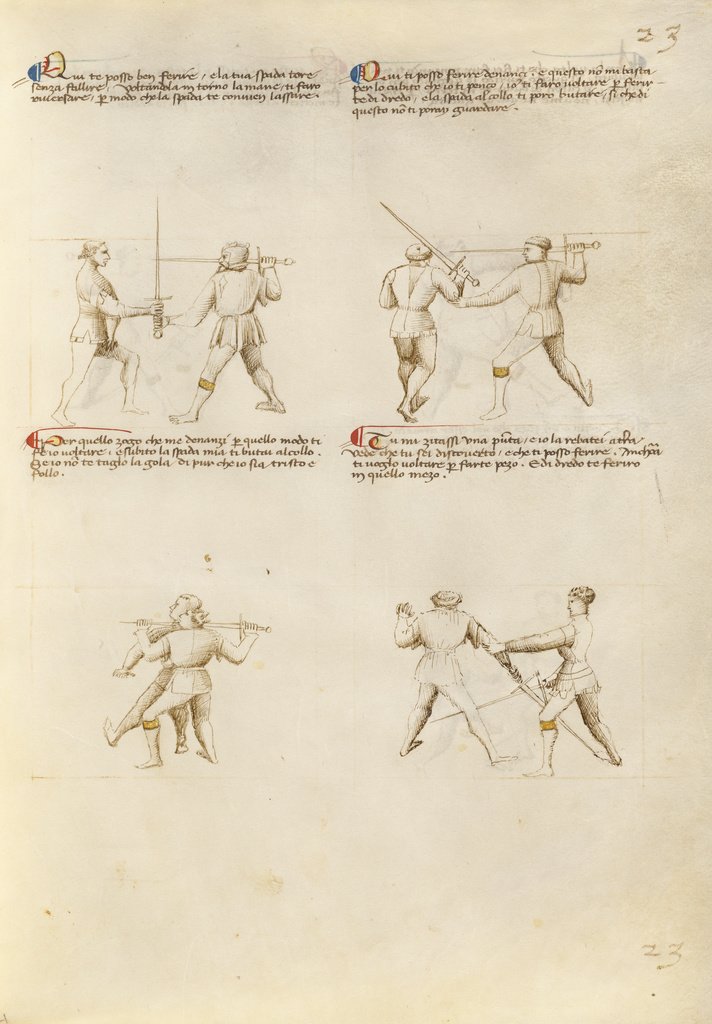 23
Qui te posso ben ferire / e la tua spada tore
senza fallire / voltandola in torno la mane / ti faro
riversare / p modo che la spada te convien lassare .
Qui ti posso ferire denanci . e questo nō mi basta
per lo cubito che io ti penço / io ti faro voltare p ferir
te di dredo / e la spada al collo ti poro butare / si che di
questo nō ti poray guardare .
Per quello zogo che me denanzi p quello modo ti
fe io voltare / e subito la spada mia ti butai al collo .
Se io nō te taglo la gola di pur che io sia tristo e
follo .
Tu mi zitassi una pūta / e io la rebatei a tra
vede che tu sei discoverto / e che ti posso ferire .
ti voglo voltare p farte pezo . E di dredo te feriro
in quello mezo .
23